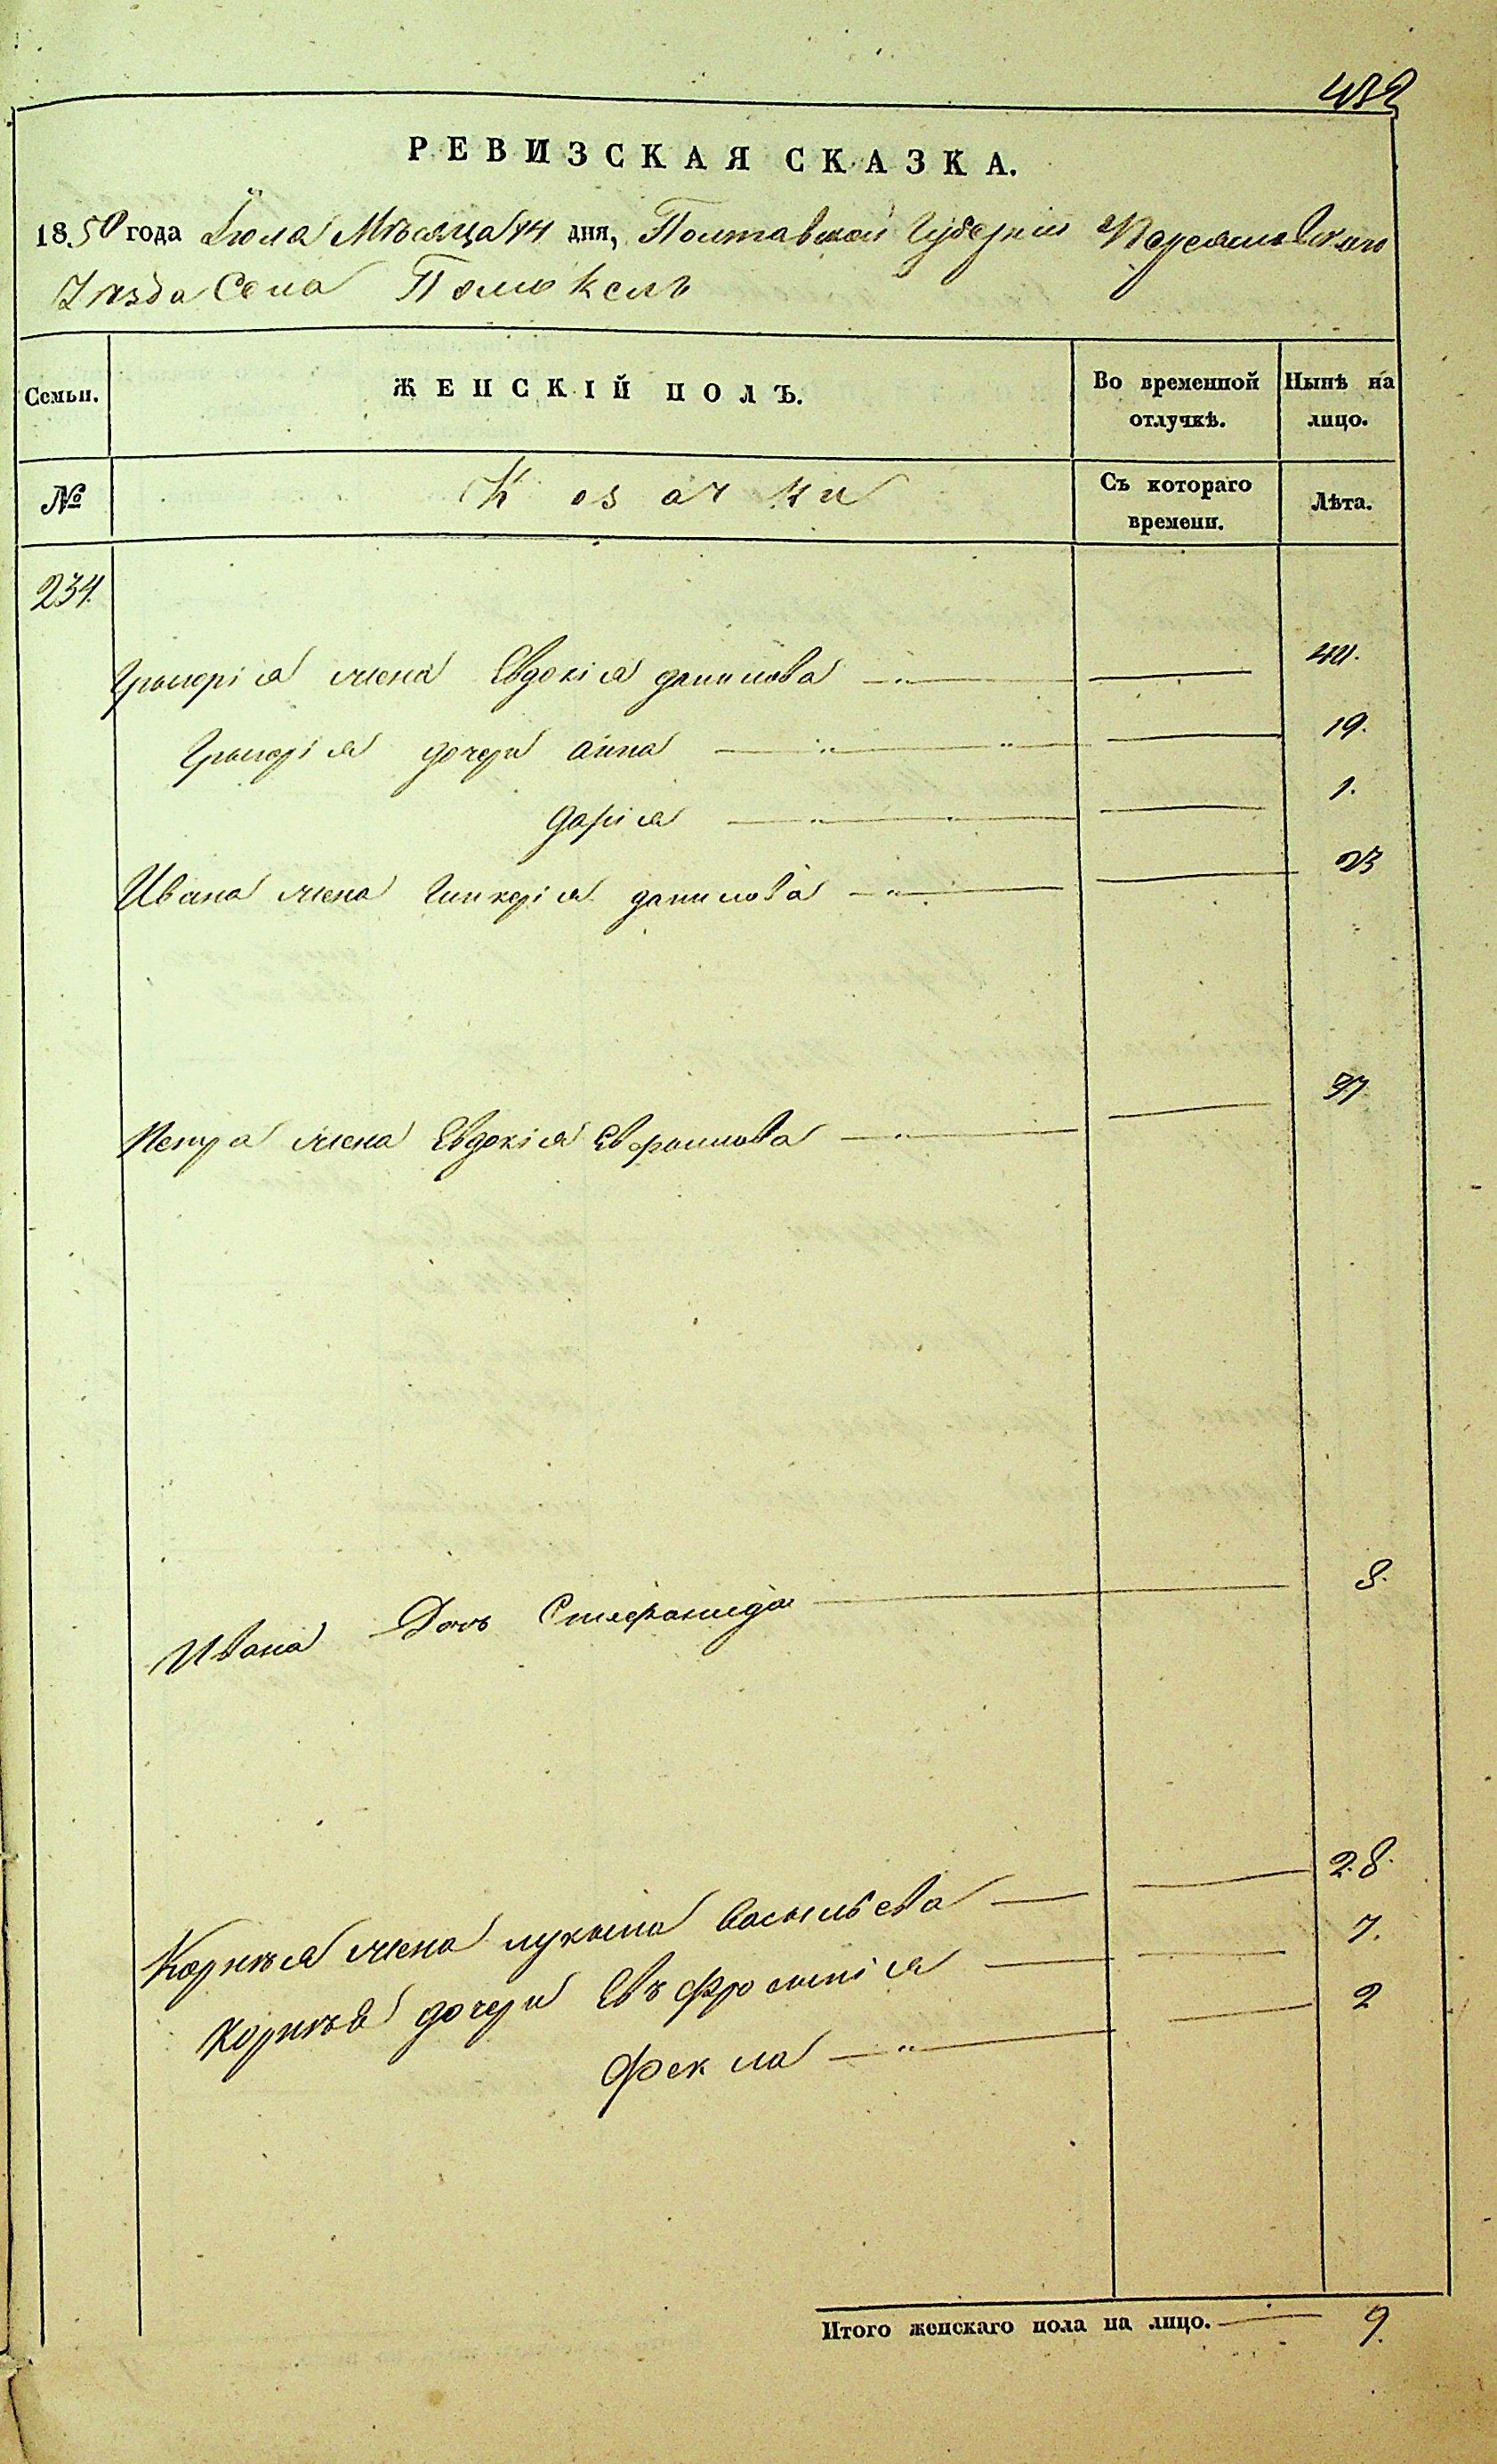 432
РЕВИЗСКАЯ СКАЗКА.
1850 года Іюля Мѣсяца 14 дня, Полтавской Губерніи Переяславскаго
Уѣзда Села Помокель
Семьи. ЖЕНСКІЙ ПОЛЪ. Во временной отлучкѣ. Нынѣ на лицо.
№ Козачки Съ котораго времени. Лѣта.
234.
Григорія жена Евдокія данилова 44.
Григорія дочери анна 19.
дарія 1.
Ивана жена Гликерія данилова 23
Петра жена Евдокія 37
Ивана Дочь Стефанида 8.
Корнѣя жена лукия Васильева 28.
Корнѣя дочери Евфросинія 7.
Фекла 2
Итого женскаго пола на лицо. 9.